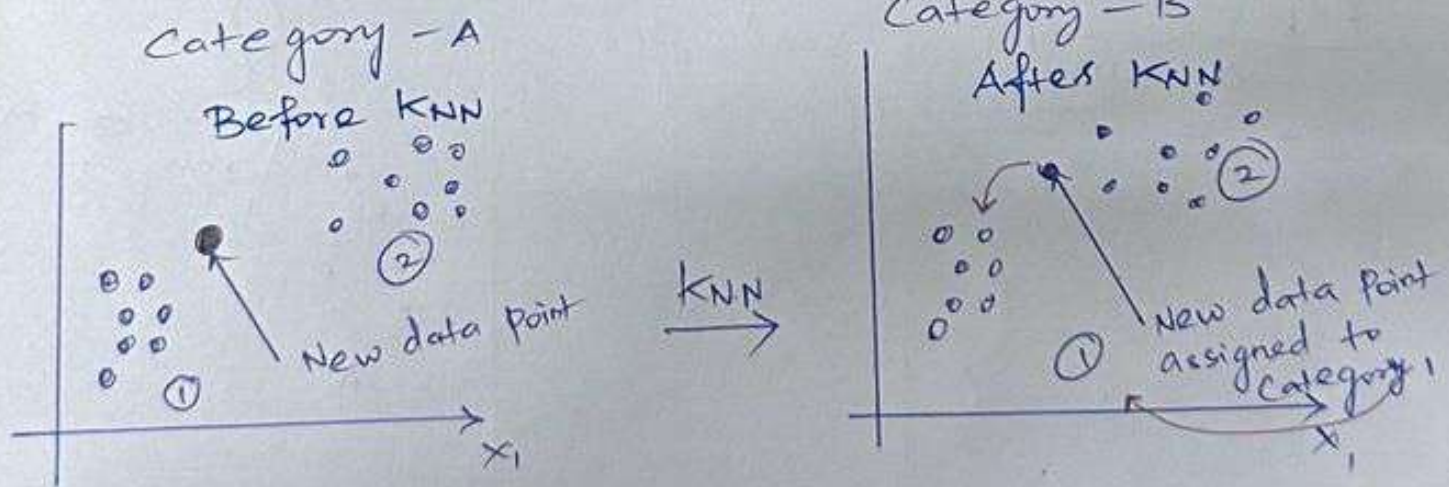 Category - A
Before KNN
2
New data point
1
X1
KNN
Category - B
After KNN
2
New data Point
assigned to
Category 1
1
X1